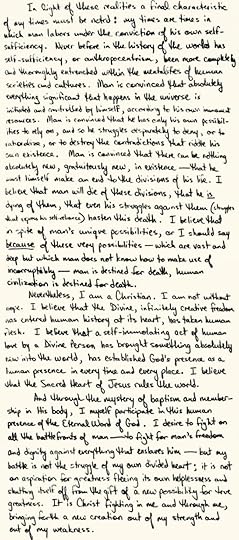 In light of these realities a final characteristic
of my times must be noted: my times are times in
which man labors under the conviction of his own self-
sufficiency. Never before in the history of the world has
self-sufficiency, or anthropocentrism, been more completely
and thoroughly entrenched within the mentalities of human
societies and cultures. Man is convinced that absolutely
everything significant that happens in the universe is
initiated and controlled by himself, according to his own immanent
resources. Man is convinced that he has only his own possibil-
ities to rely on, and so he struggles desperately to deny, or to
rationalize, or to destroy the contradictions that riddle his
own existence. Man is convinced that there can be nothing
absolutely new, gratuitously new, in existence — that he
must himself make an end to the divisions of his life. I
believe that man will die of these divisions, that he is
dying of them, that even his struggles against them
hasten this death. I believe that
in spite of man's unique possibilities, or I should say
because of these very possibilities — which are vast and
deep but which man does not know how to make use of
incorruptibly — man is destined for death, human
civilization is destined for death.
Nevertheless, I am a Christian. I am not without
hope. I believe that the Divine, infinitely creative freedom
has entered human history at its heart, has taken human
flesh. I believe that a self-immolating act of human
love by a Divine Person has brought something absolutely
new into the world, has established God's presence as a
human presence in every time and every place. I believe
that the Sacred Heart of Jesus rules the world.
And through the mystery of baptism and member-
ship in His Body, I myself participate in this human
presence of the Eternal Word of God. I desire to fight on
all the battlefronts of man — to fight for man's freedom
and dignity against everything that enslaves him — but my
battle is not the struggle of my own divided heart; it is not
an aspiration for greatness fleeing its own helplessness and
shutting itself off from the gift of a new possibility for true
greatness. It is Christ fighting in me and through me,
bringing forth a new creation out of my strength and
out of my weakness.